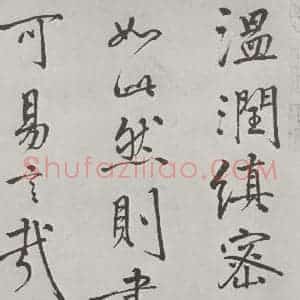 温潤縝密
如此然則書
可易言哉
Shufaziliao.com